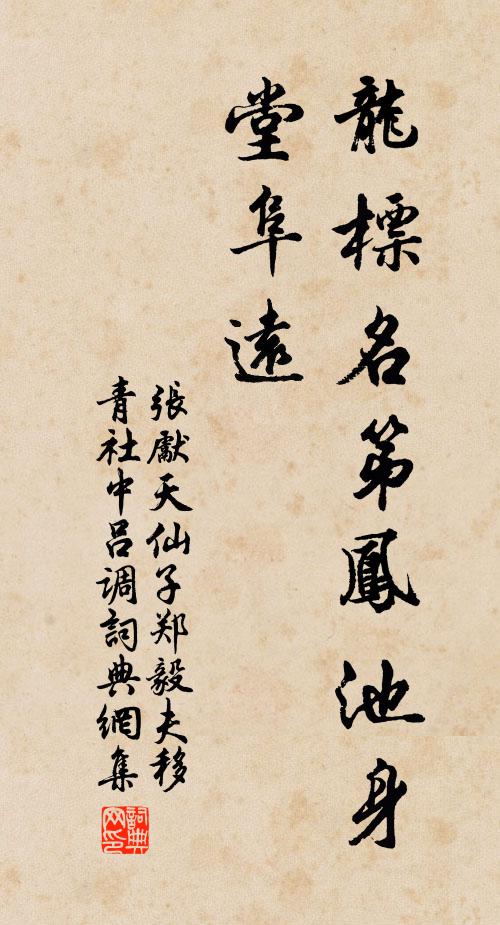 龍標名第鳳池身
堂阜遠
張獻天仙子郑毅夫移
青社中呂调詞典網集
詞典
网印